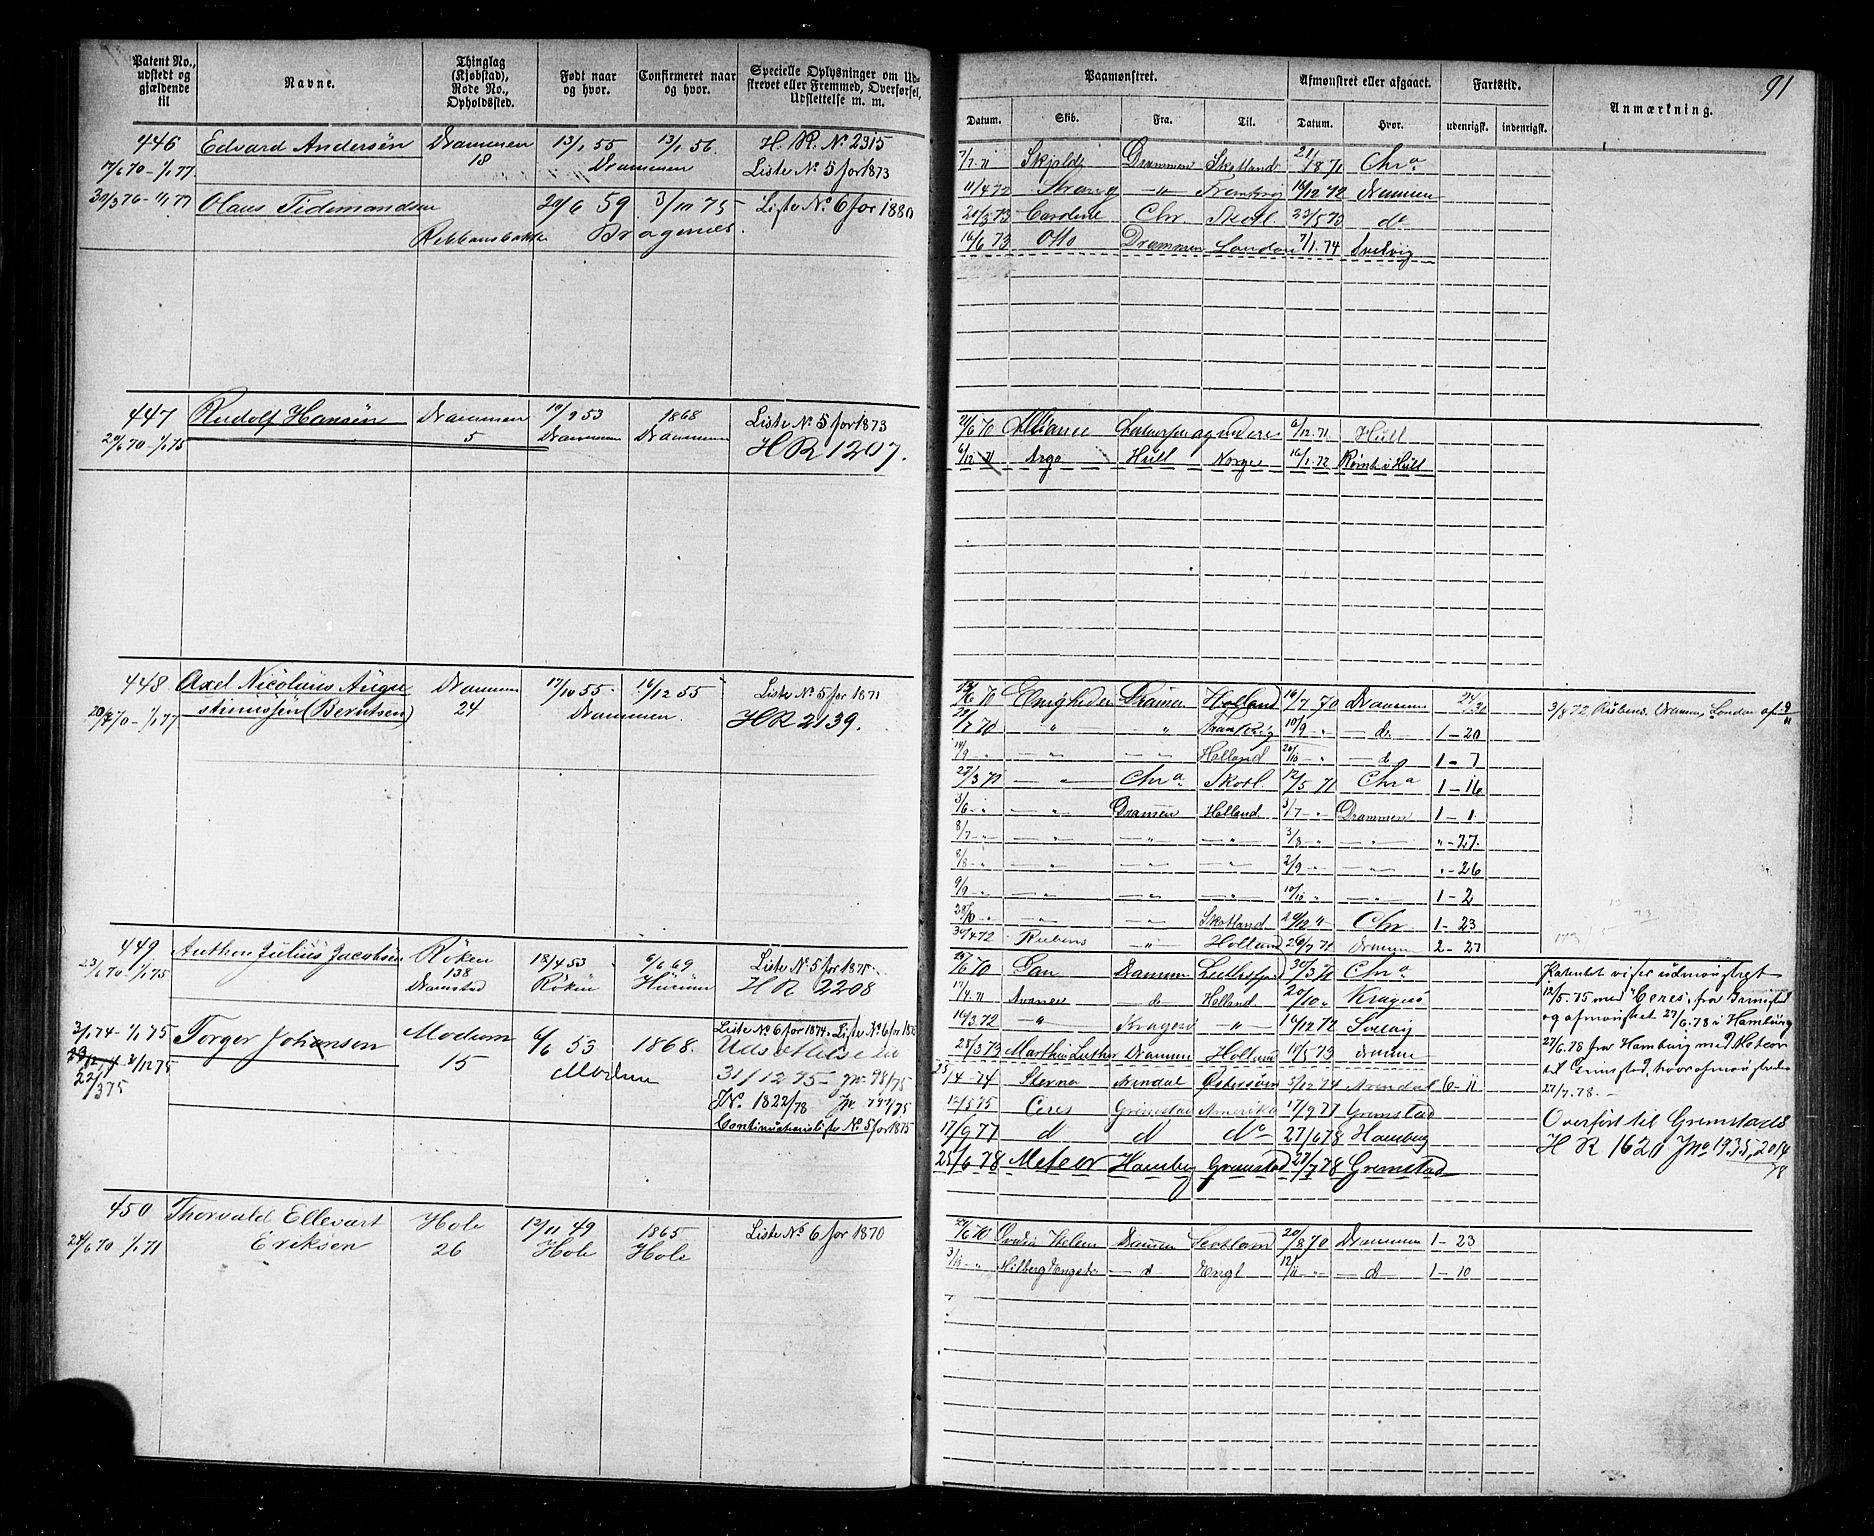 91
Patent No., udstedt og gjældende til
Navne.
Thinglag (Kjøbstad), Rode No., Opholdssted.
Født naar og hvor.
Confirmeret naar og hvor.
Specielle Oplysninger om Udskrevet eller Fremmed, Overførsel, Udslettelse m. m.
446 Edvard Andersen Drammen 13/1 55 13/1 56. H. R. No 2315
17/6 70 - 1/1 77 18 Drammen Liste No 5 for 1873
30/3 76 - 1/1 77 Olaus Tidemandsen 20/6 59 3/10 75 Liste No 6 for 1880
Bragernes.
447 Rudolf Hansen Drammen 19/9 53 1868 Liste No 5 for 1873
20/6 70 - 1/1 75 5 Drammen Drammen HR 1207.
448 Axel Nicolaus Augu Drammen 17/10 55 16/12 55 Liste No 5 for 1871
stinussen (Berntsen) 24 Drammen. HR 2139.
449 Anthon Julius Jacobsen Röken 18/4 53 6/6 69 Liste No 5 for 1875
23/6 70 1/1 75 138 Röken Hurum HR 2208
3/1 74 - 1/1 75 Torger Johansen Modum 6/6 53 1868. Liste No 6 for 1874
15 Modum
31/12 75 Jr. 98/75
JNo. 1822/78
Continuationsliste No 5 for 1875
450 Thorvald Ellevart Hole 12/11 49 1865 Liste No 6 for 1870
24/6 70 1/1 71 Eriksen 26 Hole Hole
Paamønstret.
Afmønstret eller afgaaet.
Fartstid.
Anmærkning.
Datum. Skib. Fra. Til. Datum. Hvor. udenrigsk. indenrigsk.
7/7 71 Skjold Drammen Skotland 21/8 71 Chra
11/4 72 — " — Frankrig 14/12 72 Drammen
20/3 73 Caroline Chr Skotl. do
16/6 73 Otto Drammen London 7/1. 74 Svelvig
21/6 70 Alliance 6/12 71 Hull
6/12 71 Argo Hull Norge 16/1. 72 Rømt i Hull
Enigheden Drammen Holland 19/7 70 Drammen 3/8 72 Rubens. Drammen London
" " Frankrig 10/9 - " — d 1 - 20
14/9 - " — " — Holland — d 1 - 7
28/3 71 — " Chra Skotl. 12/5 71 Chra 1 - 16
3/6 - " — " — Drammen Holland 3/7 - " Drammen 1 - 1
8/7 - " — " — — " — — " — 3/8 - " — " — " - 27.
8/8 - " — " — — " — — " — 2/9 - " — " — " - 26
9/9 - " — " — — " — — " — 10/10 - " — " — 1 - 2
— " — — " — Skotland Chr 1 - 23
30/4 72 Rubens — " — Holland Drammen 2 - 27
Gan Drammen 30/3 71 Chra Patentet viser udmønstret
17/4 71 — d Holland 20/10 " Kragerö 12/5 - 75 med "Ceres" fra Grimstad
10/3 72 — " — Kragerö — " — 16/12 72 og afmønstret 27/6. 78 i Hamburg
28/3 73 Marthin Luther Drammen Holland 10/5 73 Drammen 27/6. 78 fra Hamburg med Meteor
25/4 - 74 Sterna Arendal Østersöen 5/12 74 Arendal 6 - 11 til Grimstad, hvor afmønstredes
12/5 75 Ceres Grimstad Amerika 17/9 77 Grimstad 27/7. 78. —
17/9 77 d d do 27/6 78 Hamburg Overført til Grimstads
25/6 78 Meteor Hamburg Grimstad 27/7 78 Grimstad H R 1620 Jno 1935, 2014/78
24/6 70 Helene Drammen Scotland 20/8 70 Drammen 1 - 23
3/10 " — d Engl 12/11 - " — d 1 - 10